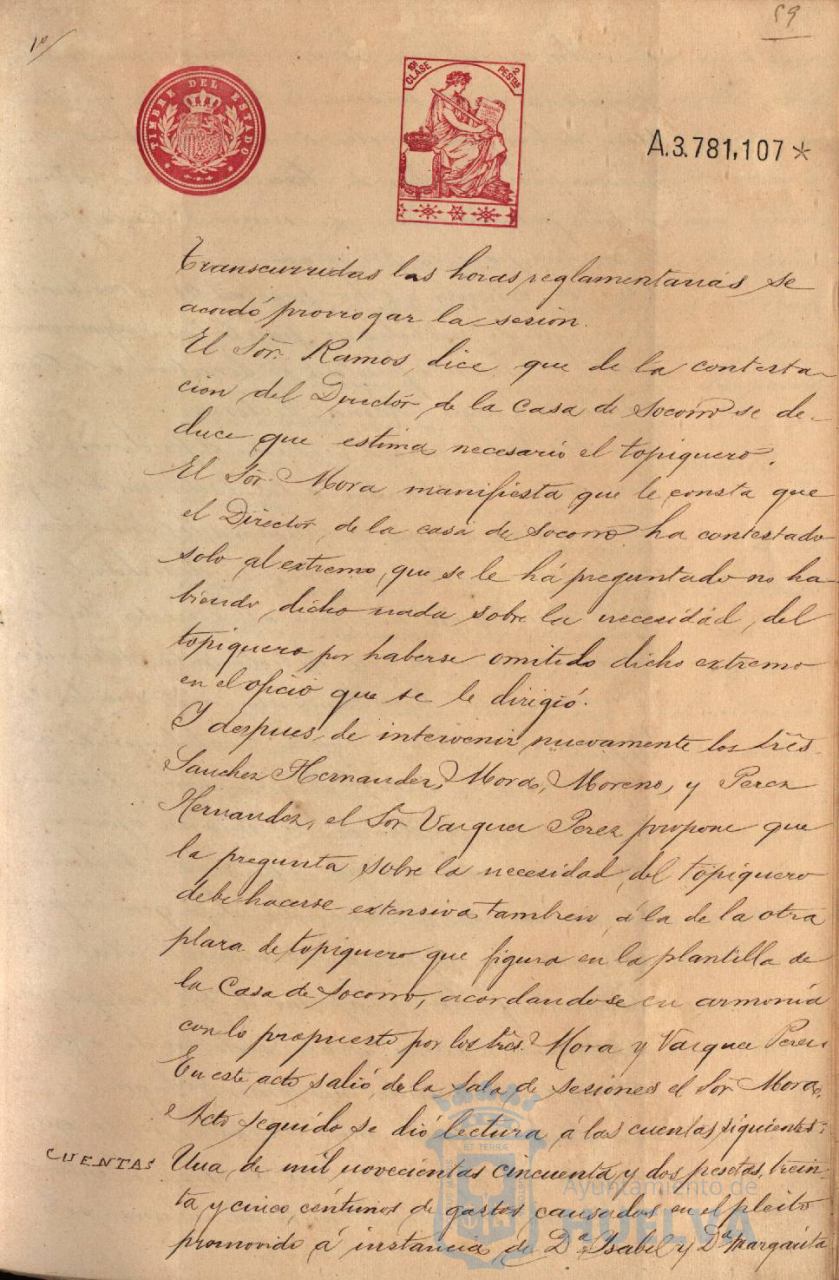 59
1º
TIMBRE DEL ESTADO
5ª CLASE 2 PESTAS
A.3.781,107*
Transcurridas las horas reglamentarias se
acordó prorrogar la sesión.
El Sor. Ramos, dice que de la contesta-
cion del Director de la Casa de Socorro se de-
duce que estima necesario el topiquero.
El Sor. Mora manifiesta que le consta que
el Director de la casa de Socorro ha contestado
solo al extremo que se le há preguntado no ha-
biendo dicho nada sobre la necesidad del
topiquero por haberse omitido dicho extremo
en el oficio que se le dirigió.
Y despues de intervenir nuevamente los Srês.
Sanchez Hernandez, Mora, Moreno, y Perez
Hernandez, el Sor Vazquez Perez propone que
la pregunta sobre la necesidad del topiquero
debe hacerse extensiva tambien á la de la otra
plaza de topiquero que figura en la plantilla de
la Casa de Socorro, acordandose en armonía
con lo propuesto por los Srês. Mora y Vazquez Perez.
En este acto salió de la Sala de sesiones el Sor Mora.
Acto seguido se dió lectura á las cuentas siguientes:
CUENTAS Una de mil novecientas cincuenta y dos pesetas, trein-
ta y cinco céntimos de gastos causados en el pleito
promovido á instancia de Dª Isabel y Dª Margarita
Ayuntamiento de
HUELVA